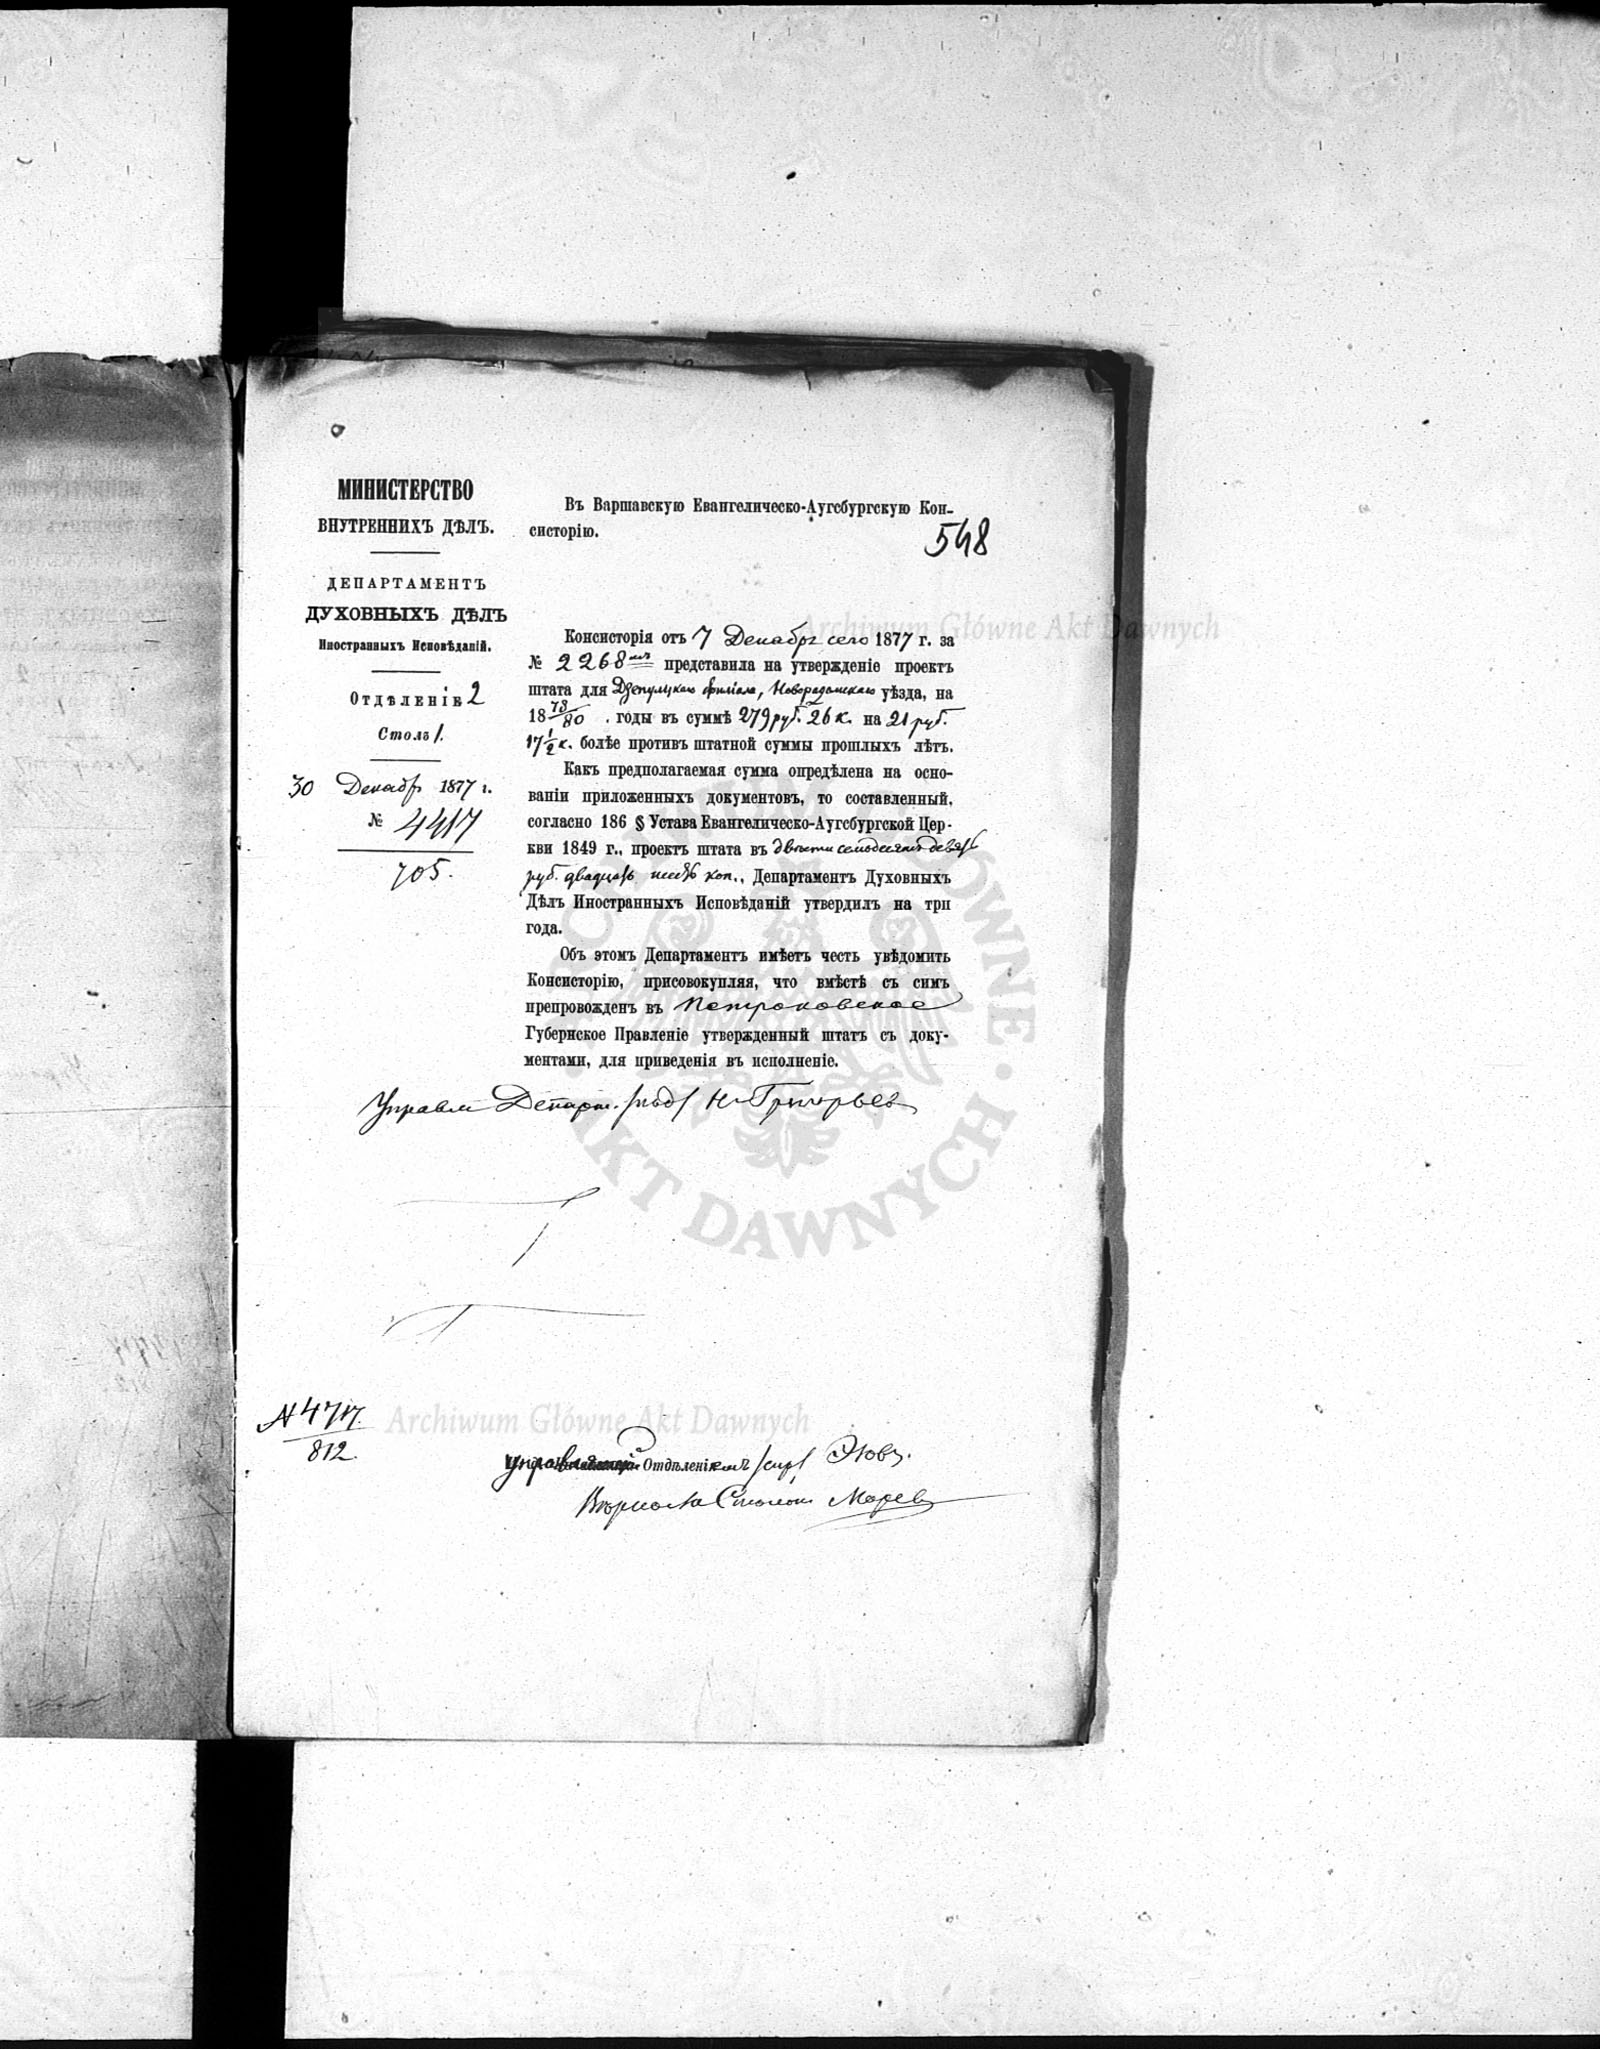 МИНИСТЕРСТВО
ВНУТРЕННИХЪ ДѢЛЪ.
ДЕПАРТАМЕНТЪ
ДУХОВНЫХЪ ДѢЛЪ
Иностранныхъ Исповѣданій.
Отдѣленіе 2
Столъ 1.
30 Декабр 1877 г.
№ 4417
705.
Въ Варшавскую Евангелическо-Аугсбургскую Кон-
систорію.
548
Консисторія отъ 7 Декабр сего 1877 г. за
№ 2268 представила на утвержденіе проектъ
штата для Дзепулцкаго филіала, Новорадомскаго уѣзда, на
18 78/80 . годы въ суммѣ 279 руб. 26 к. на 21 руб.
17 1/2 к. болѣе противъ штатной суммы прошлыхъ лѣтъ.
Какъ предполагаемая сумма опредѣлена на осно-
ваніи приложенныхъ документовъ, то составленный,
согласно 186 § Устава Евангелическо-Аугсбургской Цер-
кви 1849 г., проектъ штата въ двѣсти семьдесятъ девять
руб. двадцать шесть коп., Департаментъ Духовныхъ
Дѣлъ Иностранныхъ Исповѣданій утвердилъ на три
года.
Объ этомъ Департаментъ имѣетъ честь увѣдомить
Консисторію, присовокупляя, что вмѣстѣ съ симъ
препровожденъ въ Петроковское
Губернское Правленіе утвержденный штатъ съ доку-
ментами, для приведенія въ исполненіе.
Управл Департ. /под/ Н Григорьев
№ 4717.
812.
Отдѣленіемъ
Archiwum Główne Akt Dawnych
Archiwum Główne Akt Dawnych
ARCHIWUM GŁÓWNE · AKT DAWNYCH ·